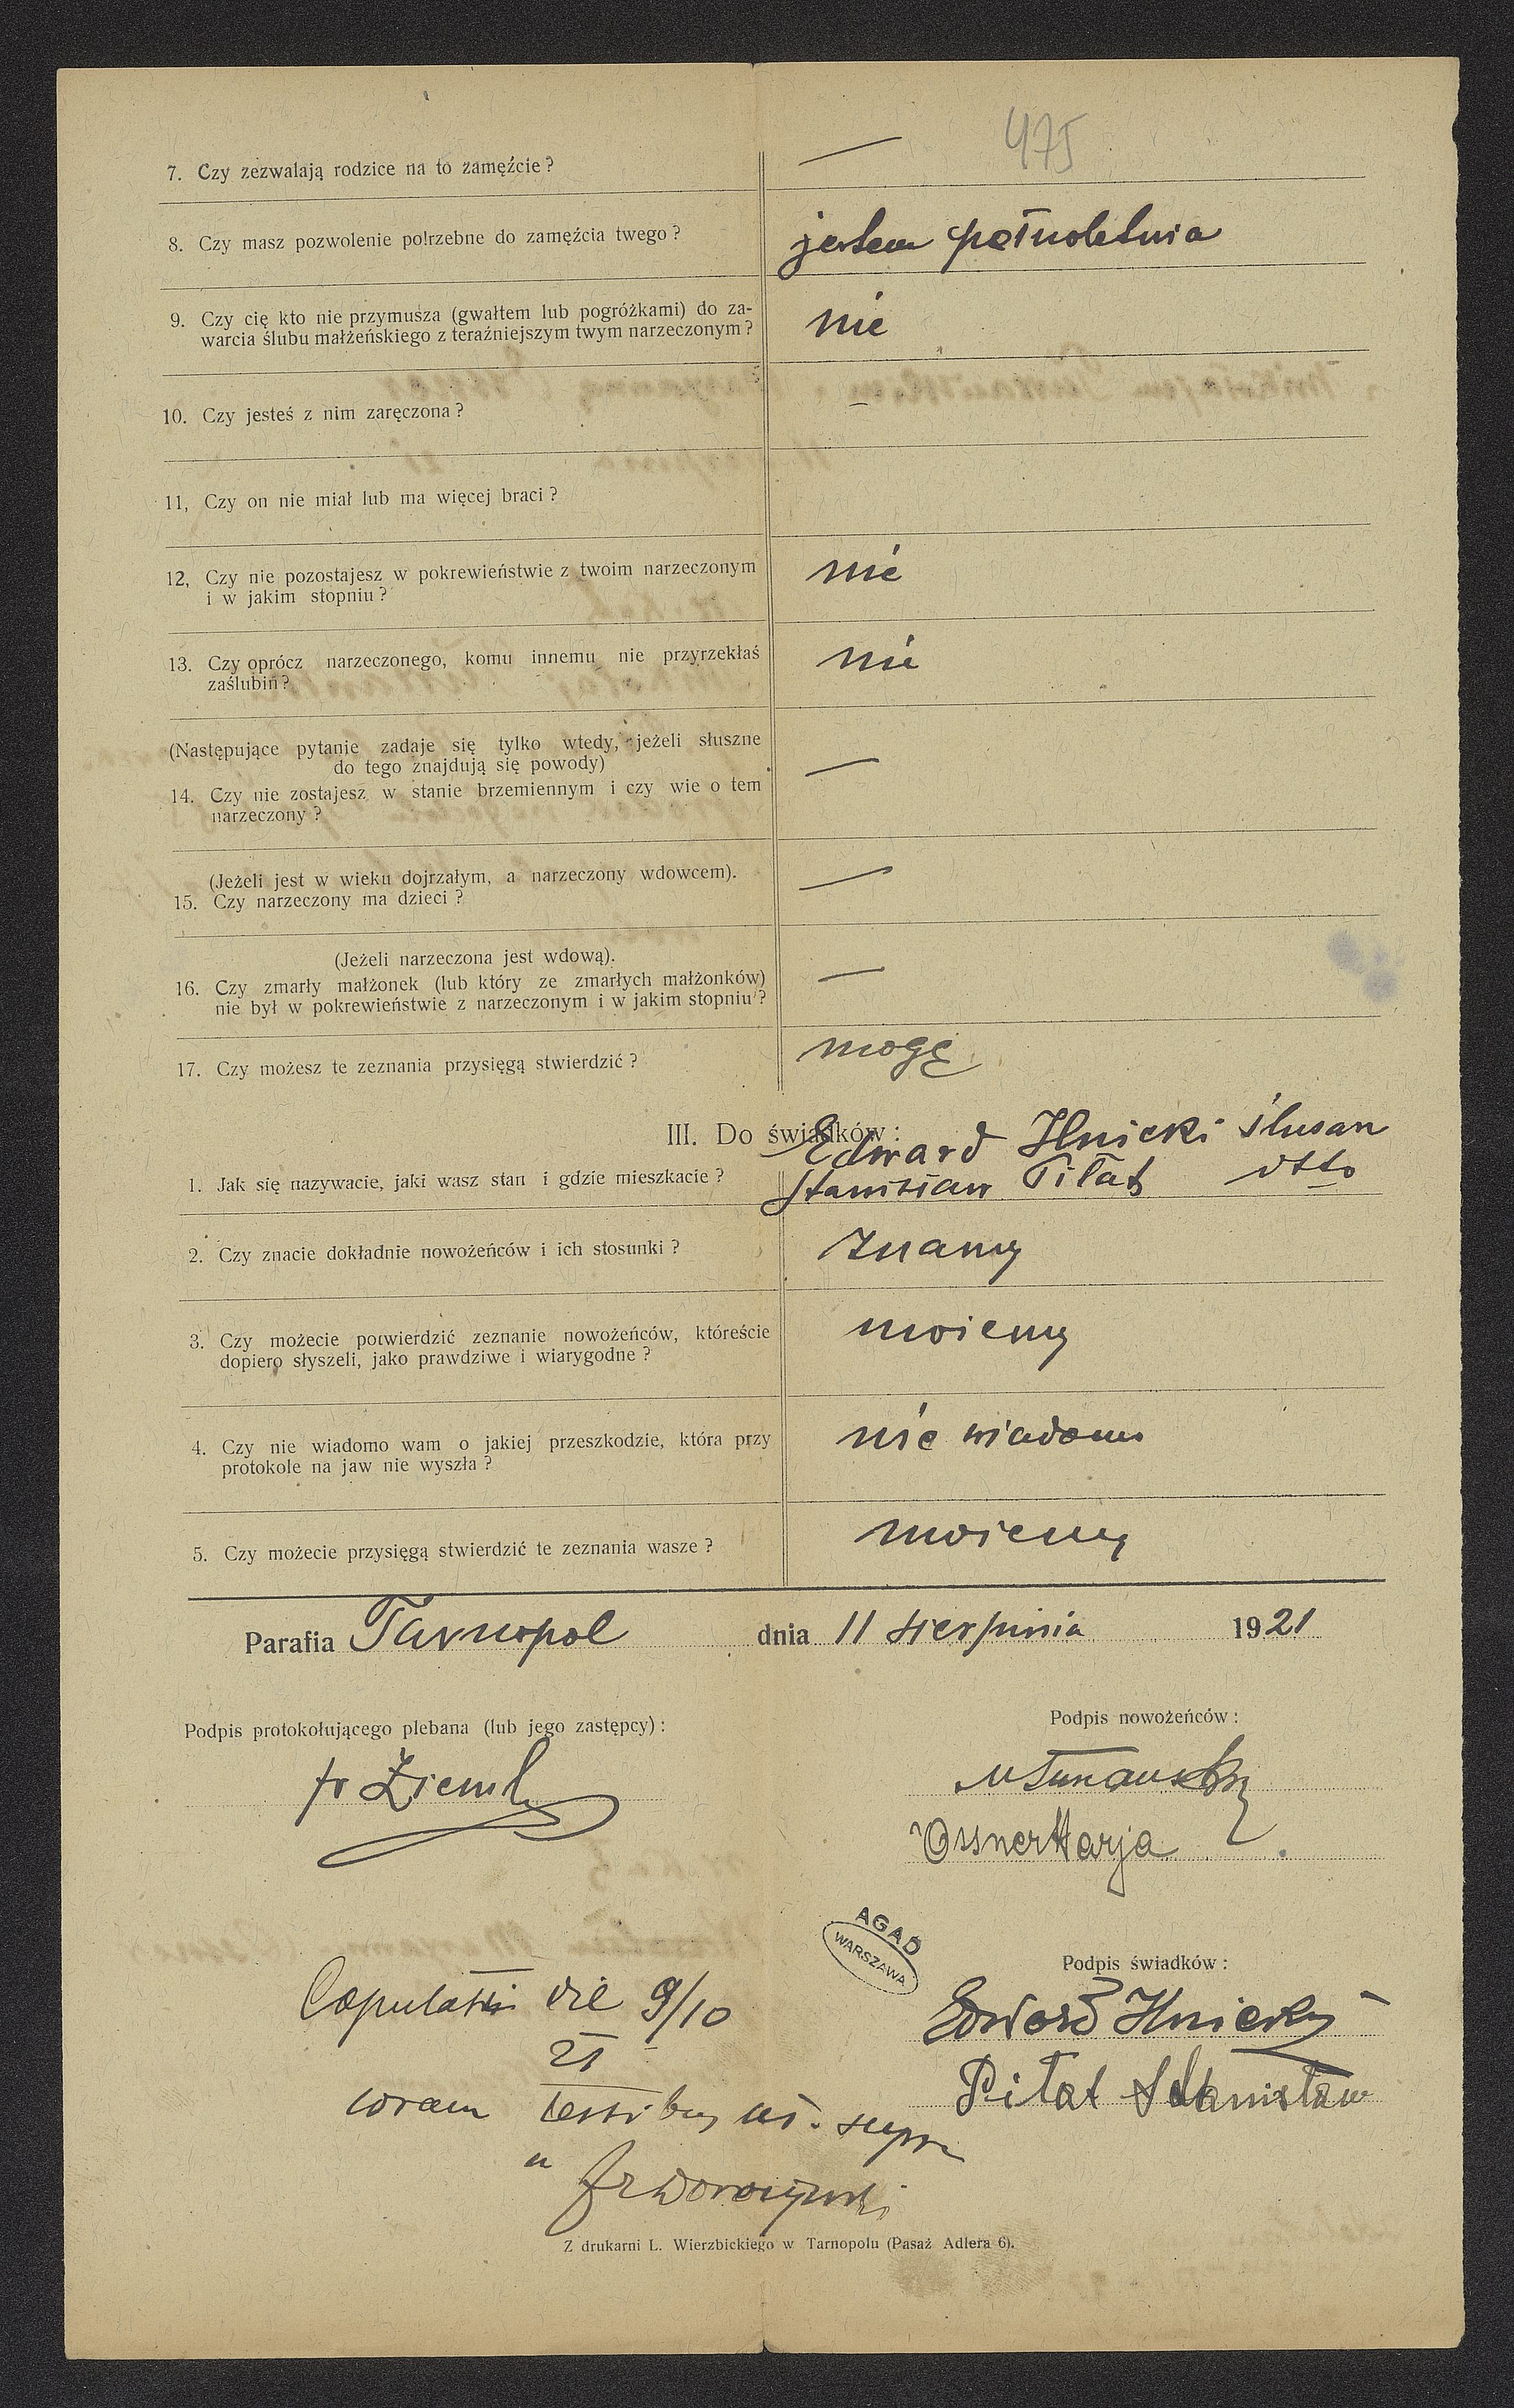 475
7. Czy zezwalają rodzice na to zamęźcie? —
8. Czy masz pozwolenie potrzebne do zamęźcia twego? jestem pełnoletnia
9. Czy cię kto nie przymusza (gwałtem lub pogróżkami) do za-
warcia ślubu małżeńskiego z teraźniejszym twym narzeczonym? nie
10. Czy jesteś z nim zaręczona? –
11, Czy on nie miał lub ma więcej braci?
12, Czy nie pozostajesz w pokrewieństwie z twoim narzeczonym
i w jakim stopniu? nie
13. Czy oprócz narzeczonego, komu innemu nie przyrzekłaś
zaślubin? nie
(Następujące pytanie zadaje się tylko wtedy, jeżeli słuszne
do tego znajdują się powody)
14. Czy nie zostajesz w stanie brzemiennym i czy wie o tem
narzeczony? —
(Jeżeli jest w wieku dojrzałym, a narzeczony wdowcem).
15. Czy narzeczony ma dzieci? —
(Jeżeli narzeczona jest wdową).
16. Czy zmarły małżonek (lub który ze zmarłych małżonków)
nie był w pokrewieństwie z narzeczonym i w jakim stopniu? —
17. Czy możesz te zeznania przysięgą stwierdzić? mogę
III. Do świadków:
Edward Ilnicki ślusarz
1. Jak się nazywacie, jaki wasz stan i gdzie mieszkacie? Stanisław Piłat dtto
2. Czy znacie dokładnie nowożeńców i ich stosunki? znamy
3. Czy możecie potwierdzić zeznanie nowożeńców, któreście
dopiero słyszeli, jako prawdziwe i wiarygodne? możemy
4. Czy nie wiadomo wam o jakiej przeszkodzie, która przy
protokole na jaw nie wyszła? nie wiadomo
5. Czy możecie przysięgą stwierdzić te zeznania wasze? możemy
Parafia Tarnopol dnia 11 sierpnia 1921
Podpis protokołującego plebana (lub jego zastępcy):
Podpis nowożeńców:
Ossner Marja
AGAD
WARSZAWA
Podpis świadków:
Copulati die 9/10
21
Edward Ilnicky
coram testibus ut supra
Piłat Stanisław
Z drukarni L. Wierzbickiego w Tarnopolu (Pasaż Adlera 6).